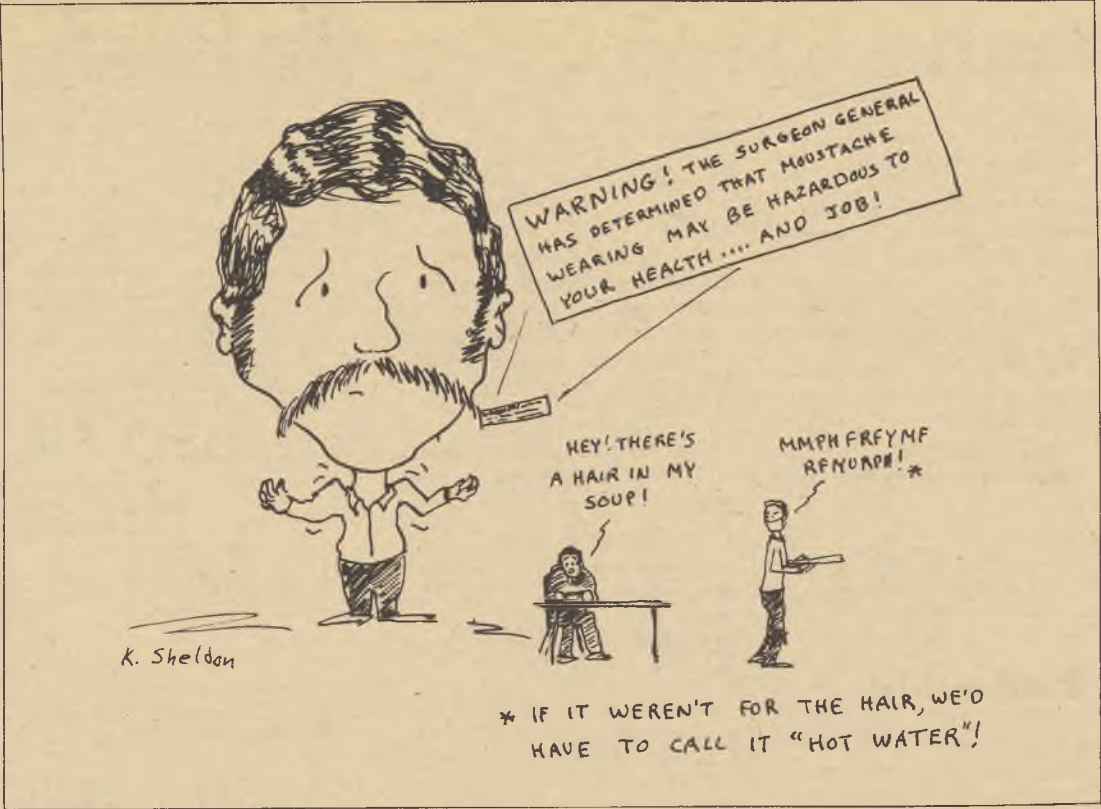 WARNING! THE SURGEON GENERAL
HAS DETERMINED THAT MOUSTACHE
WEARING MAY BE HAZARDOUS TO
YOUR HEALTH .... AND JOB!
HEY! THERE'S
A HAIR IN MY
SOUP!
MMPHFRFYMF
* IF IT WEREN'T FOR THE HAIR, WE'D
HAVE TO CALL IT "HOT WATER"!
K. Sheldon